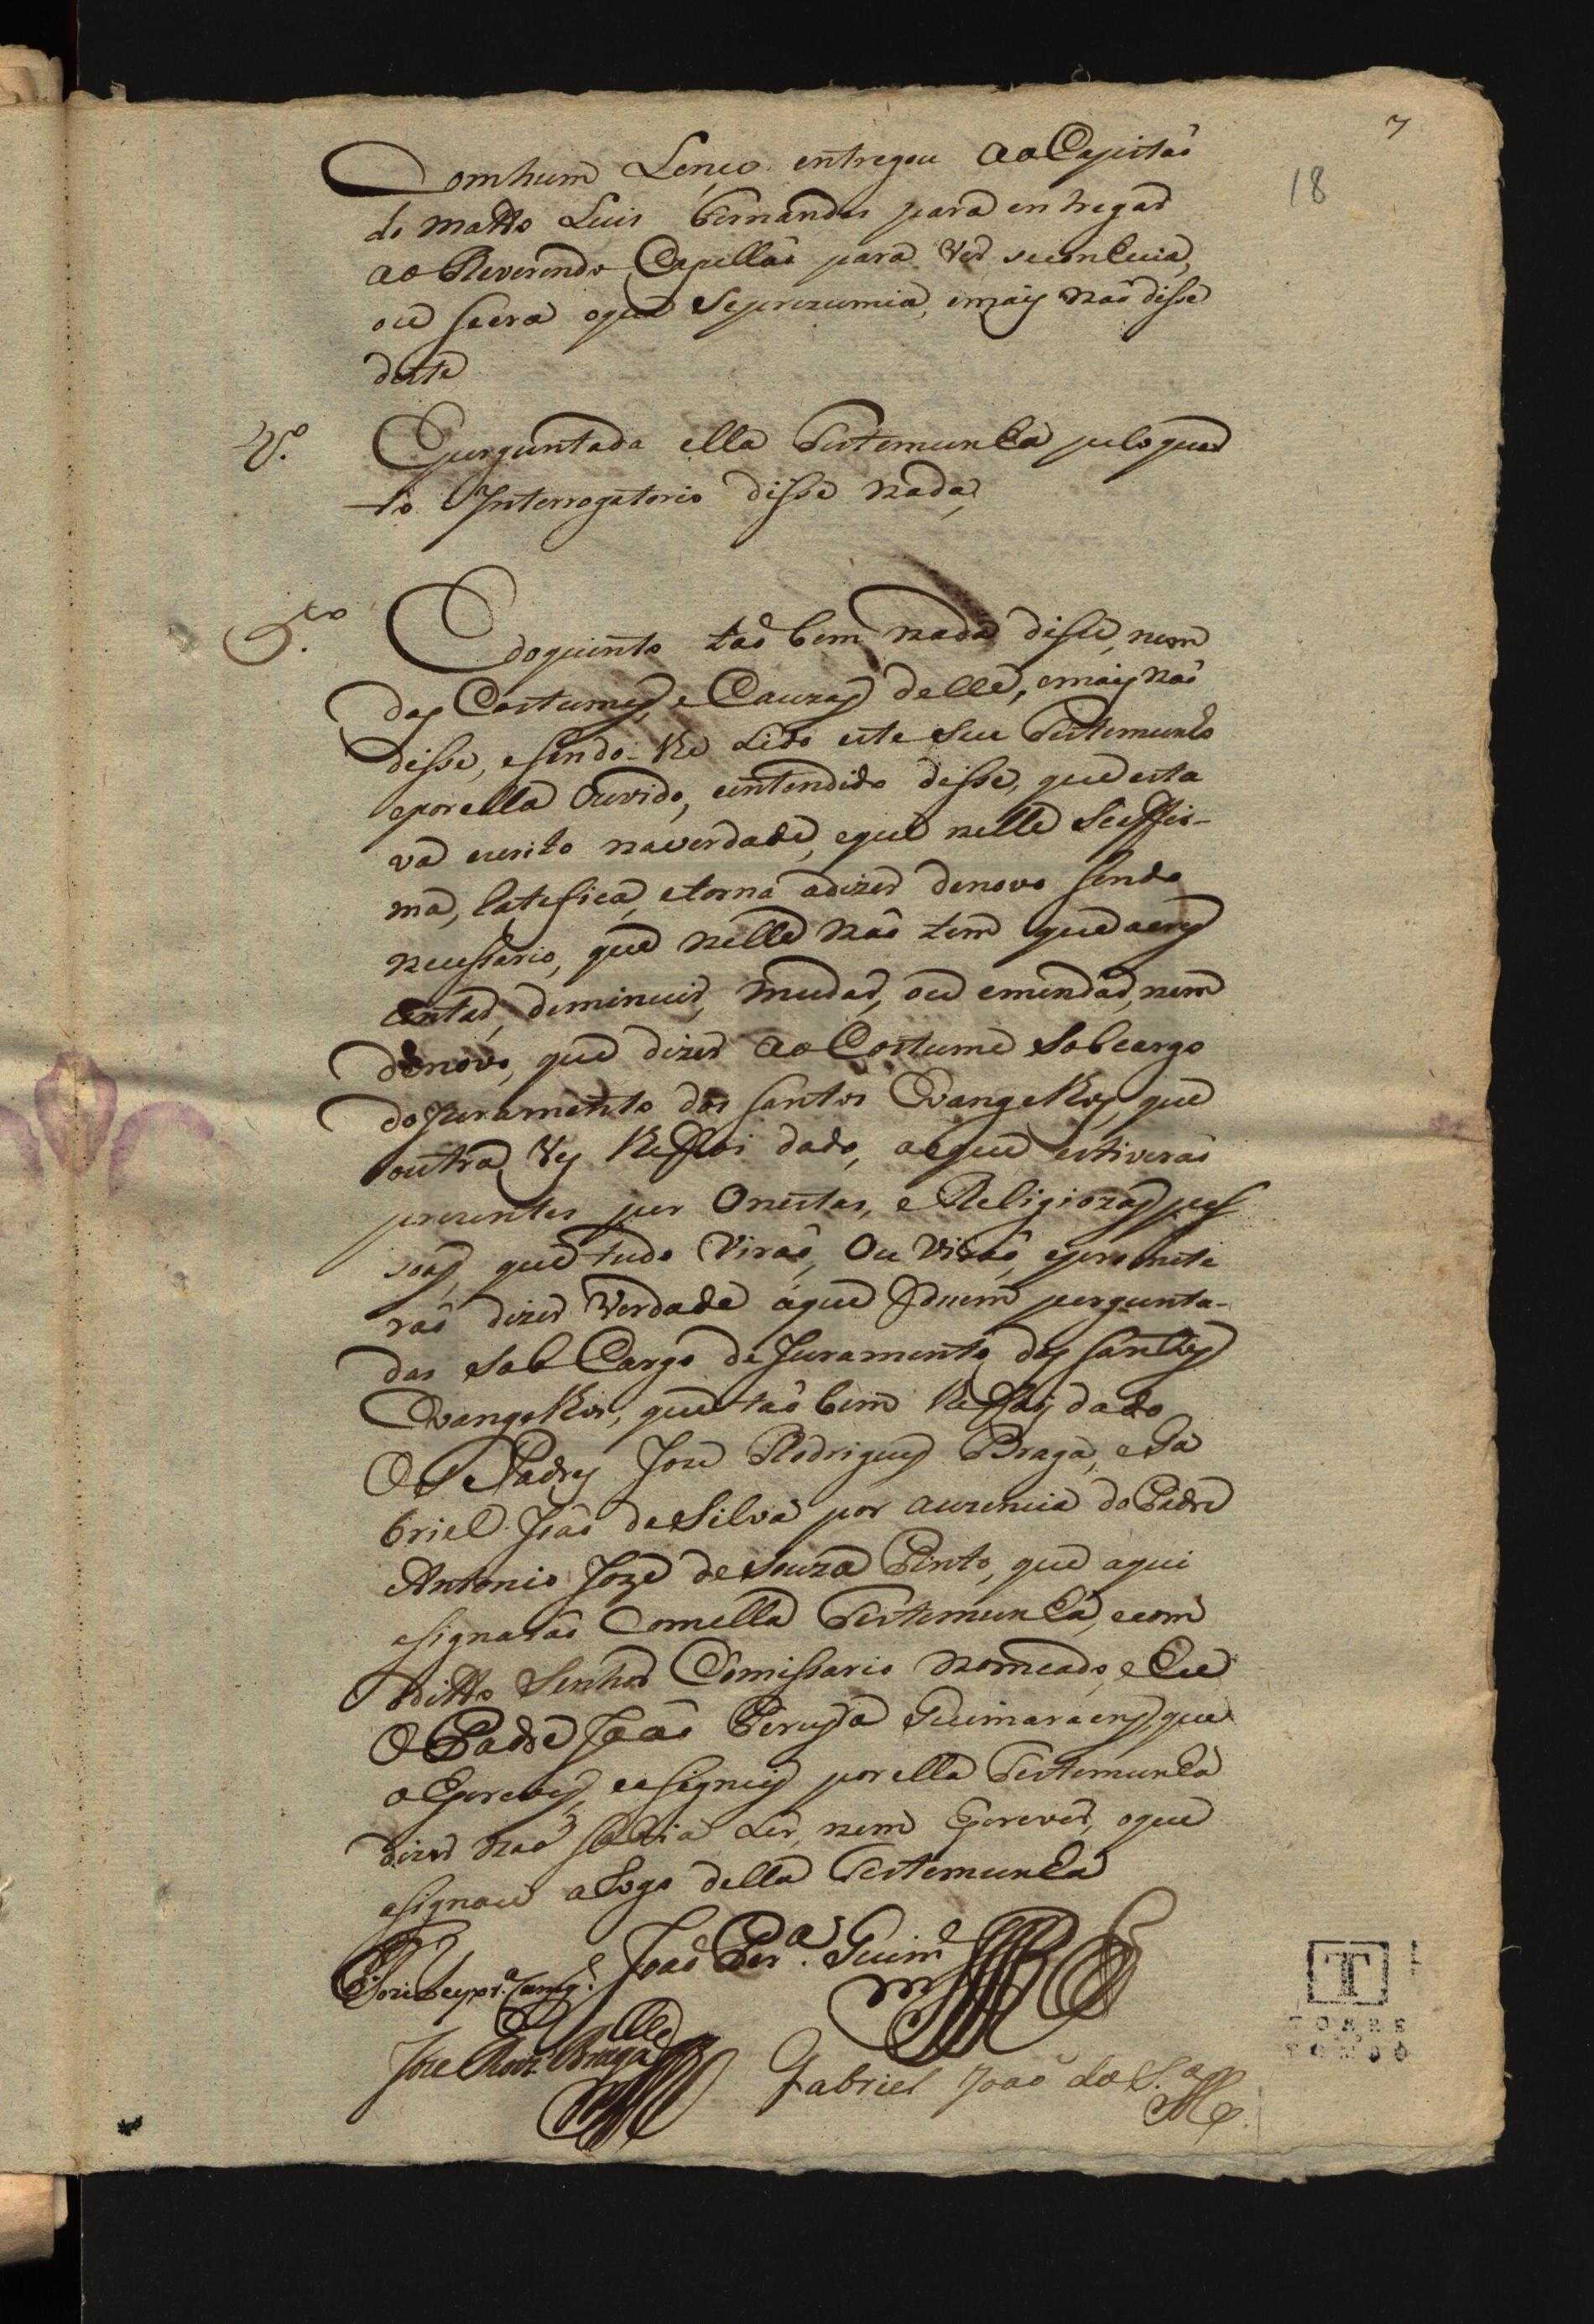 7
18
Com hum Lenço entregou ao Capitaõ
do matto Luis Fernandes para entregar
ao Reverendo Capellaõ para ver seconhecia,
ou seera oque Seprezumia, emais naõ disse
deste
4.º
Eperguntada ella Testemunha peloquar
to Interrogatorio disse nada,
5.to
Edoquinto taõ bem nada disse, nem
dos Costumes, e Cauzas delle, emais naõ
disse, esendo-lhe Lido este seu Testemunho
eporella Ouvido, eentendido disse, que esta
va escrito naverdade, eque nelle Seaffir-
ma, Ratefica, etorna adizer denovo sendo
necessario, que nelle naõ tem que acres
entar, deminuir, mudar, ou emendar, nem
denovo, que dizer ao Costume Sobcargo
doJuramento dos Santos Evangelhos, que
outra Ves lheffoi dado, aoque estiveraõ
prezentes por Onestas, e Religiozas pes
soas, que tudo Viraõ, Ouviraõ, eprometi
raõ dizer Verdade áque fduem pergunta-
das Sob Cargo de Juramento dos Santos
Evangelhos, que taõ bem lheffoy dado
OS Padres Joze Rodrigues Braga, e Ga
briel Joaõ da Silva por auzencia do Padre
Antonio Joze de Souza Pinto, que aqui
asignaraõ Comella Testemunha, ecom
ditto Senhor Comissario nomeado, e Eu
O Padre Joaõ Pereyra Guimaraens, que
o Escrevy, easigney por ella Testemunha
dizer naõ Sabia Ler, nem Escrever, oque
asignou aRogo della Testemunha
Joaõ Per.ª Guim.es
Joze Roiz Braga
Gabriel Joaõ da S.ª
T
TORRE
DO
TOMBO